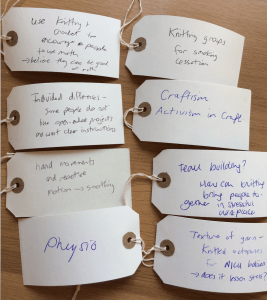 Use Knitting &
Crochet to
encourage people
to use maths
→ believe they can be good
Knitting groups
for smoking
cessation
Individual differences –
some people do not
like open-ended projects
and want clear instructions
Craftism
Activism in Craft
hand movements
and
motion → soothing
Team building?
How can knitting
bring people to-
gether in
workplace
Physio
Texture of yarn –
Knitted octopuses
NICU babies
→ does it have